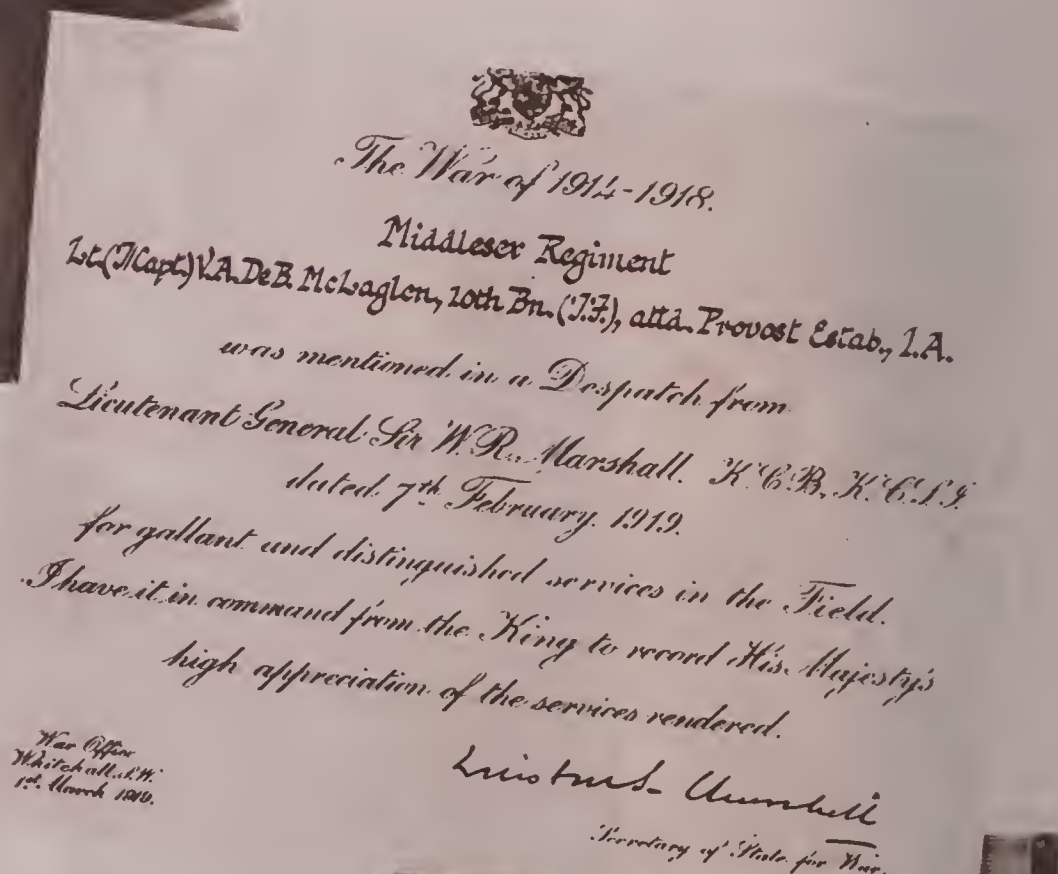 The War of 1914-1918.
Middlesex Regiment
Lt.(T/Capt.) V.A.DeB. McLaglen, 10th Bn. (T.F.), attd. Provost Estab., I.A.
was mentioned in a Despatch from
Lieutenant General Sir W.R. Marshall. K.C.B. K.C.S.I.
dated 7th February. 1919.
for gallant and distinguished services in the Field.
I have it in command from the King to record His Majesty's
high appreciation of the services rendered.
War Office
Whitehall, S.W.
1st March 1919.
Winston S. Churchill
Secretary of State for War.